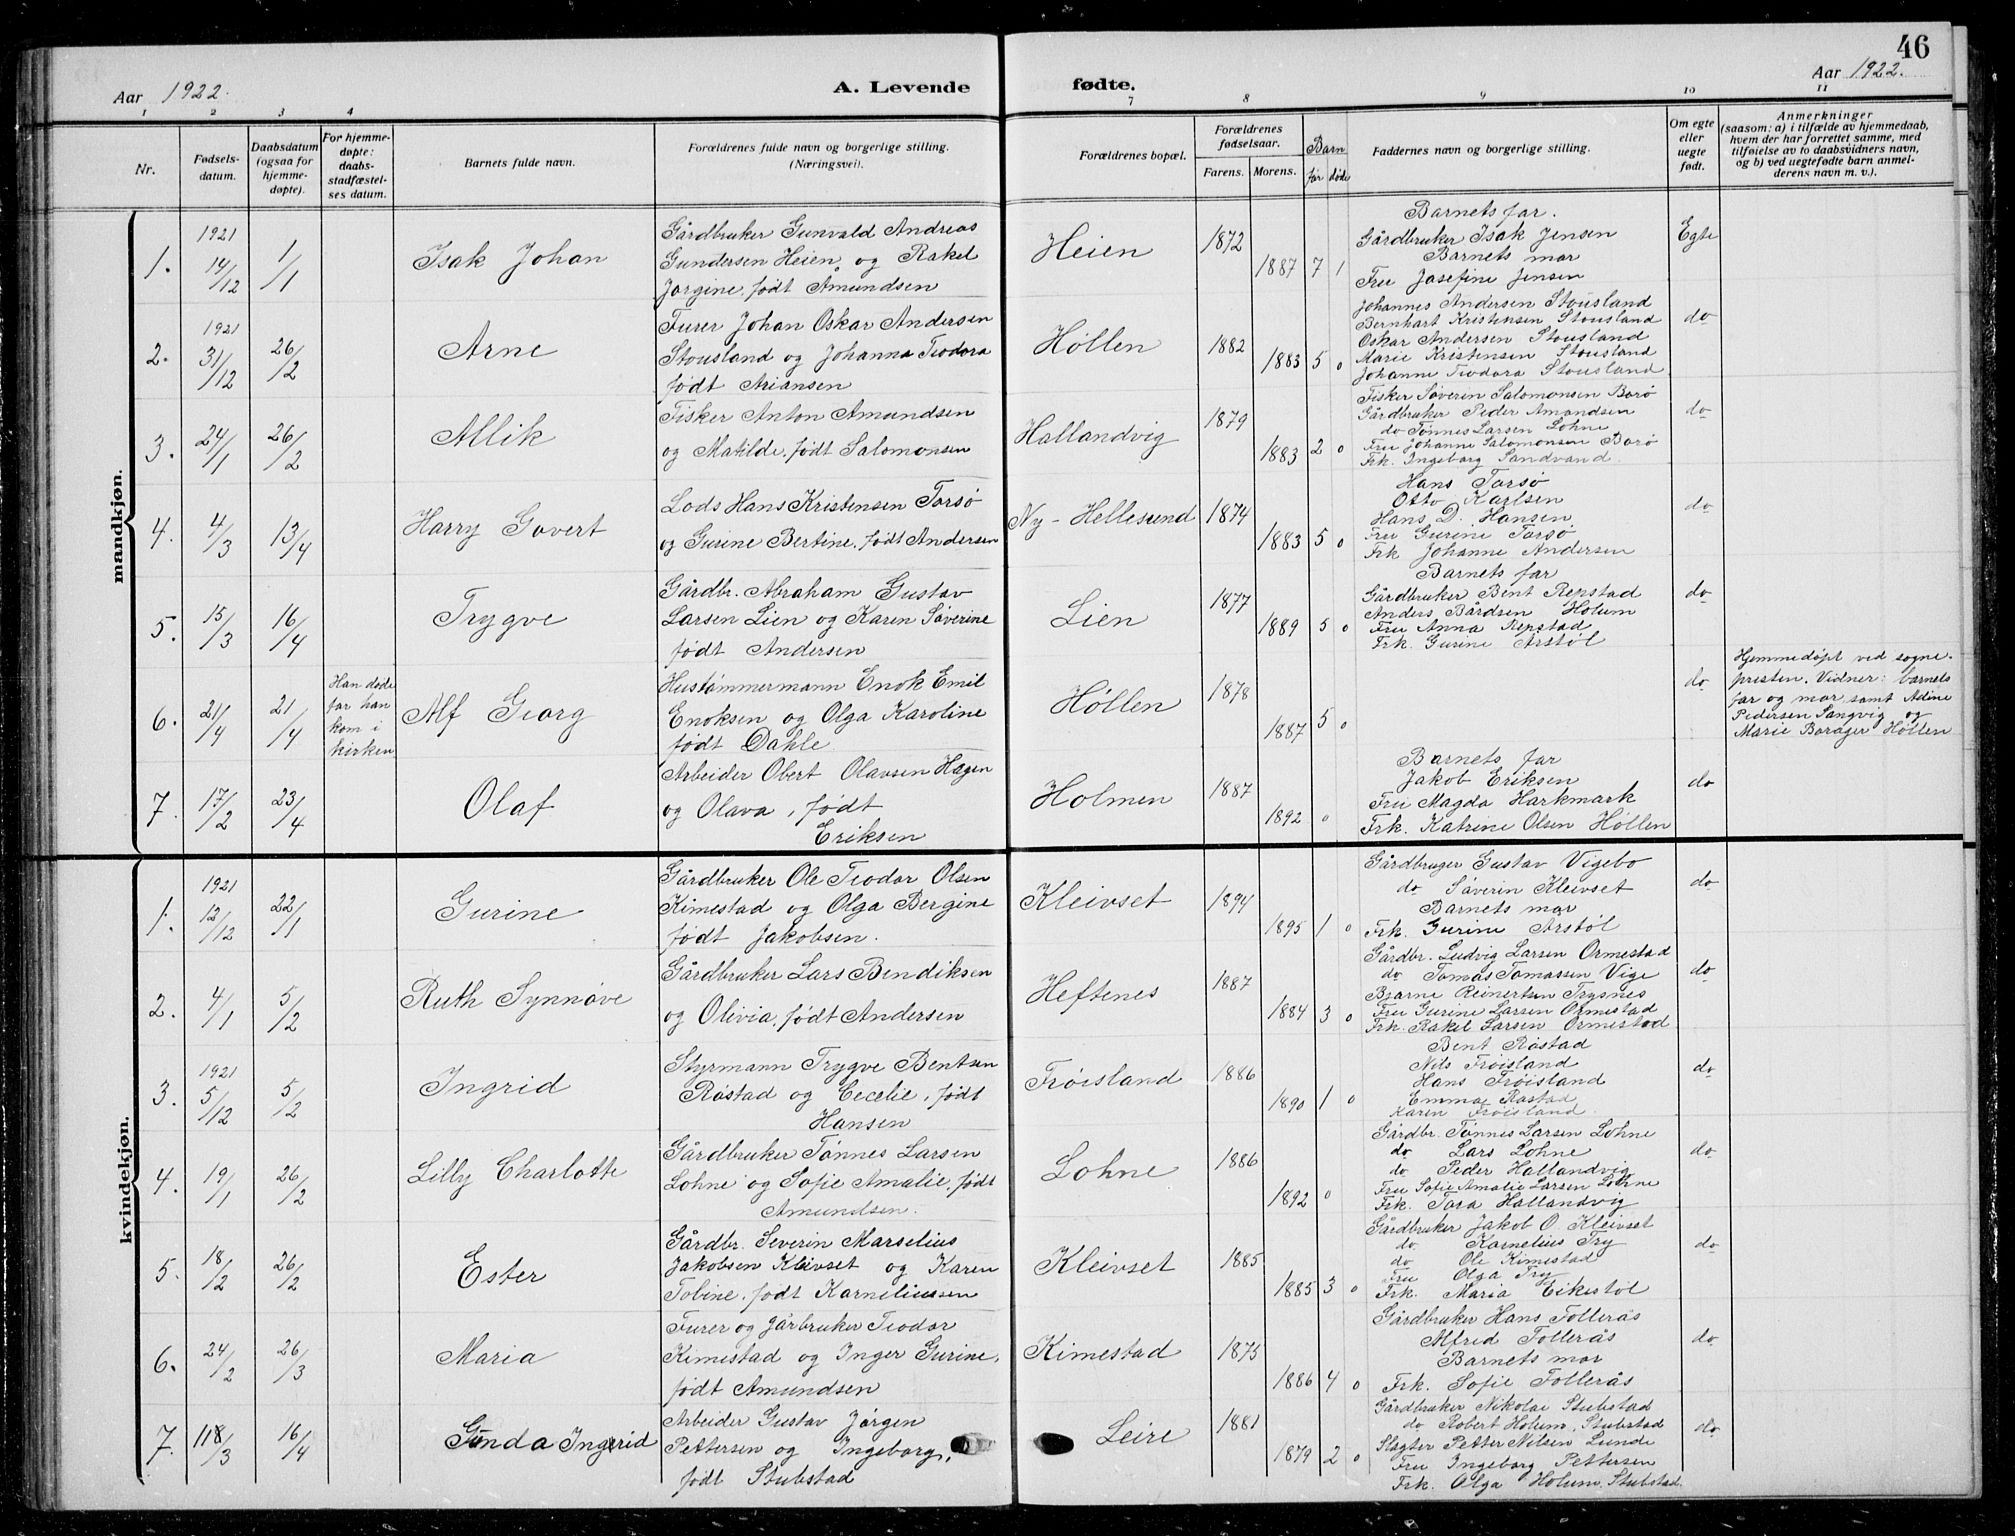 46
Aar 1922.
A. Levende fødte.
Aar 1922.
1 2 3 4 7 8 9 10 11
Nr.
Fødsels-
datum.
Daabsdatum
(ogsaa for
hjemme-
døpte).
For hjemme-
døpte:
daabs-
stadfæstel-
ses datum.
Barnets fulde navn.
Forældrenes fulde navn og borgerlige stilling.
(Næringsvei).
Forældrenes bopæl.
Forældrenes
fødselsaar.
Farens. Morens.
Barn
før døde
Faddernes navn og borgerlige stilling.
Om egte
eller
uegte
født.
Anmerkninger
(saasom: a) i tilfælde av hjemmedaab,
hvem der har forrettet samme, med
tilføielse av to daabsvidners navn,
og b) ved uegtefødte barn anmel-
derens navn m. v.).
mandkjøn.
1.
1921
14/12
1/1
Isak Johan
Gårdbruker Gunvald Andreas
Gundersen Heien og Rakel
Jorgine, født Åmundsen
Heien
1872
1887 7 1
Barnets far.
Gårdbruker Isak Jensen
Barnets mor
Fru Josefine Jensen
Egte
2.
1921
31/12
26/2
Arne
Furer Johan Oskar Andersen
Stousland og Johanna Teodora
født Ariansen
Høllen
1882
1883 5 0
Johannes Andersen Stousland
Bernhart Kristensen Stousland
Oskar Andersen Stousland
Marie Kristensen Stousland
Johanne Teodora Stousland
do
3.
24/1
26/2
Alik
Fisker Anton Amundsen
og Matilde, født Salomonsen
Hallandvig
1879
1883 2 0
Fisker Søverin Salomonsen Borø
Gårdbruker Peder Amondsen
do Tønnes Larsen Lohne
Fru Johanne Salomonsen Borø
Frk. Ingeborg Sandvand.
do
4.
4/3
13/4
Harry Govert
Lods Hans Kristensen Torsø
og Gurine Bertine, født Andersen
Ny-Hellesund
1874
1883 5 0
Hans Torsø
Otto Karlsen
Hans D. Hansen
Fru Gurine Torsø
Frk Johanne Andersen
do
5.
15/3
16/4
Trygve
Gårdbr. Abraham Gustav
Larsen Lien og Karen Søverine
født Andersen
Lien
1877
1889 5 0
Barnets far
Gårdbruker Bent Repstad
Anders Bårdsen Holum
Fru Anna Repstad
Frk. Gurine Årstøl
do
6.
21/4
21/4
Han døde
før han
kom i
kirken
Alf Georg
Hustømmermann Enok Emil
Enoksen og Olga Karoline
født Dahle
Høllen
1878
1887 5 0
do
Hjemmedøpt ved sogne-
presten. Vidner: barnets
far og mor samt Adine
Pedersen Langvig og
Marie Borøger Høllen
7.
17/2
23/4
Olaf
Arbeider Obert Olavsen Hægen
og Olava, født
Eriksen
Holmen
1887
1892 0
Barnets far
Jakob Eriksen
Fru Magda Harkmark
Frk. Katrine Olsen Høllen
do
kvindekjøn.
1.
1921
12/12
22/1
Gurine
Gårdbruker Ole Teodor Olsen
Kimestad og Olga Bergine
født Jakobsen.
Kleivset
1894
1895 1 0
Gårdbruger Gustav Vigebo
do Søverin Kleivset
Barnets mor
Frk. Gurine Årstøl
do
2.
4/1
5/2
Ruth Synnøve
Gårdbruker Lars Bendiksen
og Olivia, født Andersen
Heftenes
1887
1884 3 0
Gårdbr. Ludvig Larsen Ormestad
do Tomas Tomassen Vige
Bjarne Reinertsen Trysnes
Fru Gurine Larsen Ormestad
Frk. Rakel Larsen Ormestad
do
3.
1921
5/12
5/2
Ingrid
Styrmann Trygve Bentsen
Røstad og Cecelie, født
Hansen
Frøisland
1886
1890 1 0
Bent Røstad
Nils Frøisland
Hans Frøisland
Emma Røstad
Karen Frøisland.
do
4.
19/1
26/2
Lilly Charlotte
Gårdbruker Tønnes Larsen
Lohne og Sofie Amalie, født
Amundsen.
Lohne
1886
1892 0
Gårdbr. Tønnes Larsen Lohne
do Lars Lohne
do Peder Hallandvig
Fru Sofie Amalie Larsen Lohne
Frk. Tora Hallandvig
do
5.
18/2
26/2
Ester
Gårdbr. Severin Marselius
Jakobsen Kleivset og Karen
Tobine, født Karneliussen
Kleivset
1885
1885 3 0
Gårdbruker Jakob O. Kleivset
do Karnelius Try
do Ole Kimestad
Fru Olga Try
Frk. Maria Eikestøl
do
6.
24/2
26/3
Maria
Furer og gårbruker Teodor
Kimestad og Inger Gurine,
født Amundsen
Kimestad
1875
1886 4 0
Gårdbruker Hans Follerås
Alfred Follerås
Barnets mor
Frk. Sofie Follerås
do
7.
18/3
16/4
Gunda Ingrid
Arbeider Gustav Jørgen
Pettersen og Ingeborg,
født Stubstad
Leire
1881
1879 2 0
Gårdbruker Nikolai Stubstad
do Robert Holum, Stubstad
Slagter Petter Nilsen Lunde
Fru Ingeborg Pettersen
Frk. Olga Holum, Stubstad
do